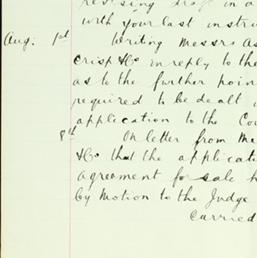 revising draft in a
with your last instru
Aug. 1st Writing Messrs As
crisp &Co in reply to the
as to the further poin
required to be dealt
application to the Cou
8th On letter from Me
&Co that the applicati
agreement for sale h
by Motion to the Judge
Carried